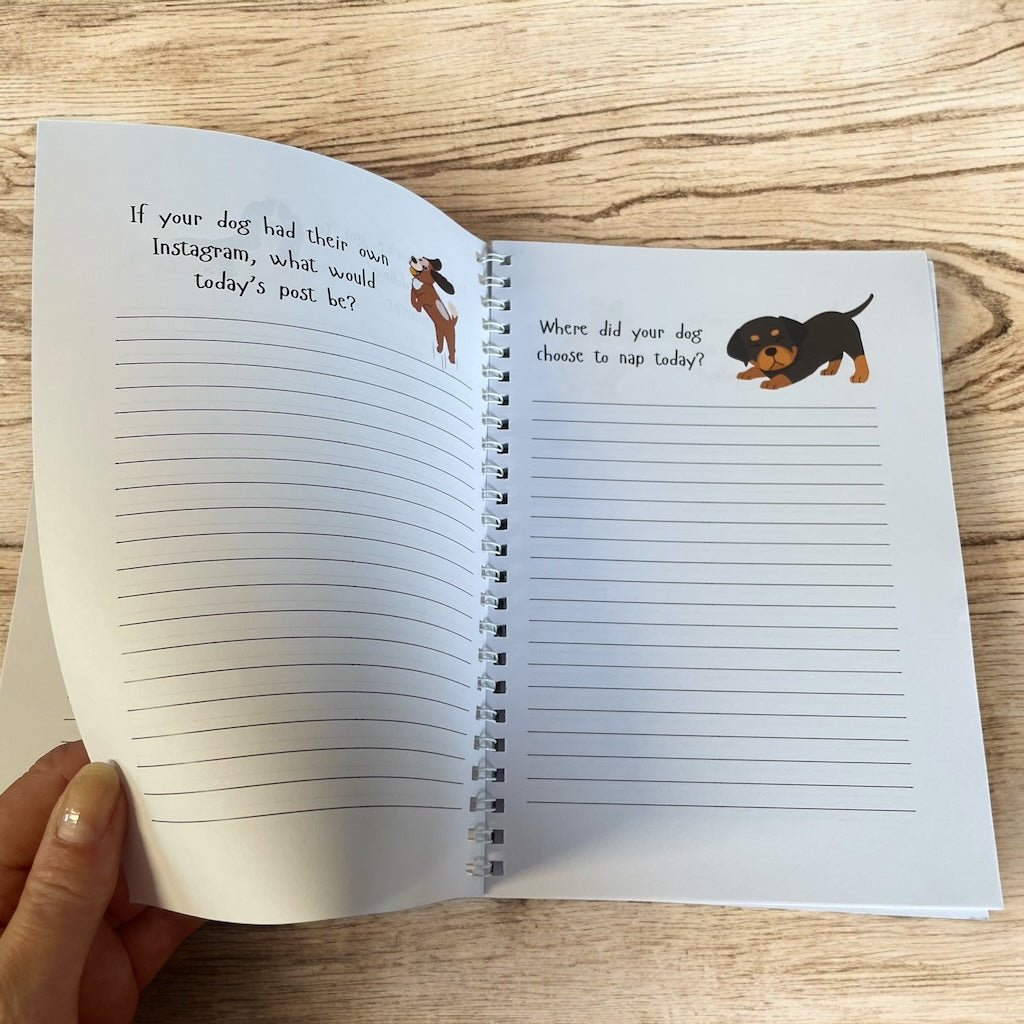 If your dog had their own
Instagram, what would
today's post be?
Where did your dog
choose to nap today?